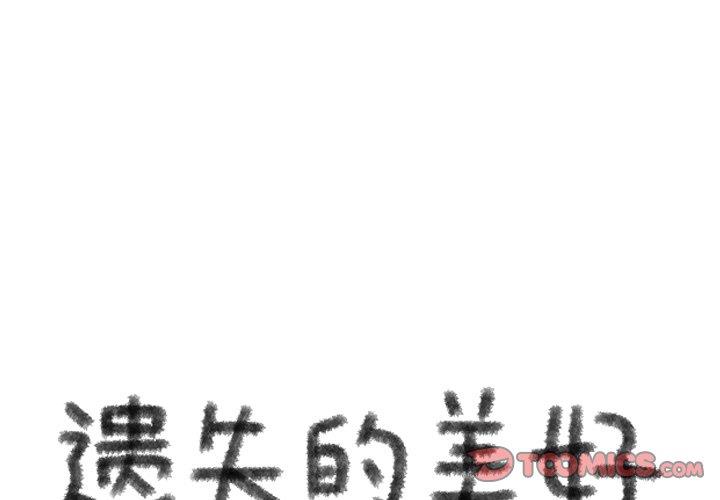 遗失的美好
TOOMICS.com